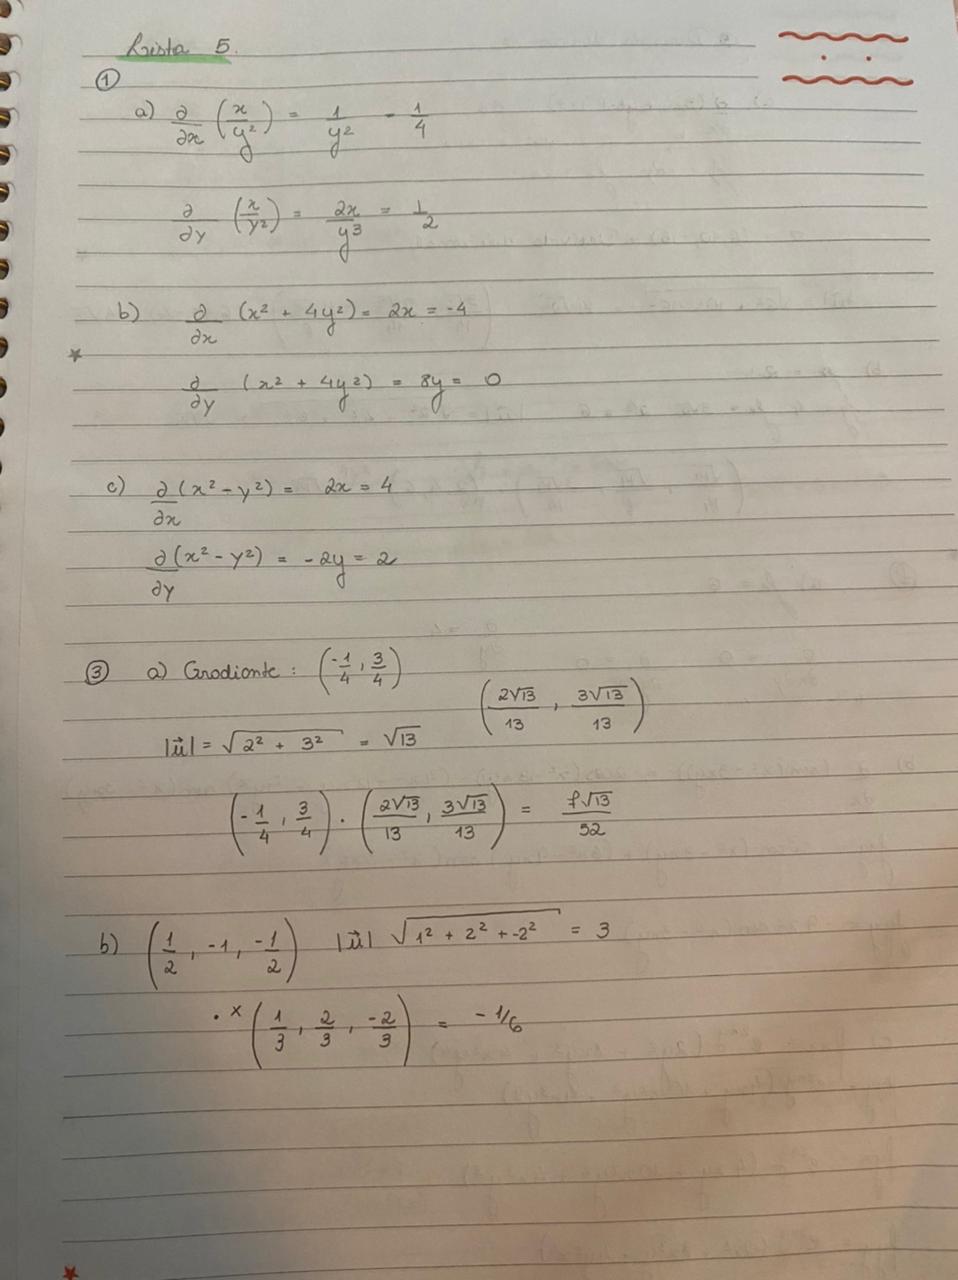 Lista 5.
①
a) ∂/∂x (x/y²) = 1/y² - 1/4
∂/∂y (x/y²) = 2x/y³ = 1/2
b) ∂/∂x (x² + 4y²) = 2x = -4
∂/∂y (x² + 4y²) = 8y = 0
c) ∂/∂x (x² - y²) = 2x = 4
∂/∂y (x² - y²) = -2y = 2
③ a) Gradiente : (-1/4, 3/4)
(2√13/13, 3√13/13)
|u⃗| = √(2² + 3²) = √13
(-1/4, 3/4) · (2√13/13, 3√13/13) = 7√13/52
b) (1/2, -1, -1/2) |u⃗| √(1² + 2² + -2²) = 3
· x (1/3, 2/3, -2/3) = -1/6